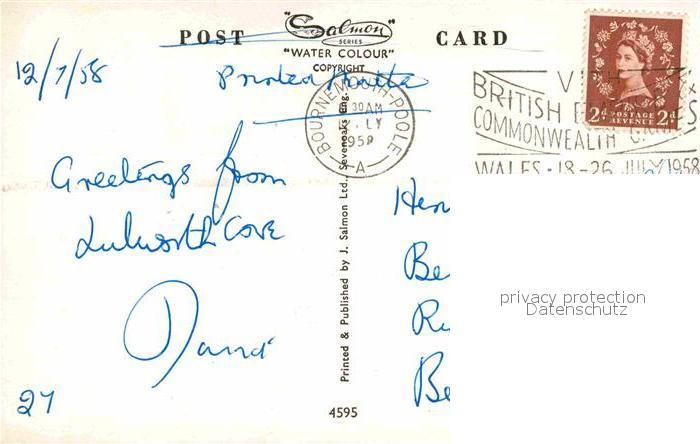 POST CARD
"Salmon
SERIES
"WATER COLOUR"
COPYRIGHT
12/7/58
Printed Matter
BOURNEMOUTH-POOLE
30AM
LY
1958
A
BRITISH
COMMONWEALTH
WALES · 18-26 JULY 1958
2d POSTAGE REVENUE 2d
Greetings from
Lulworth Cove
David
27
Printed & Published by J. Salmon Ltd., Sevenoaks Eng.
4595
Be
Be
privacy protection
Datenschutz